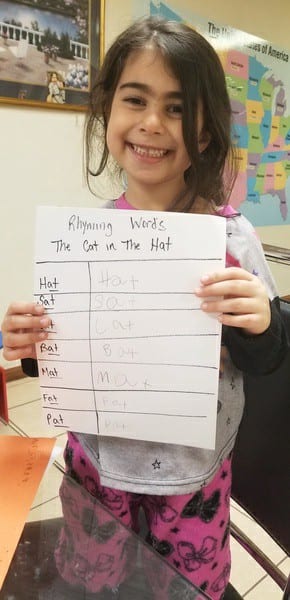 The United States of America
Rhyming Words
The Cat in The Hat
Hat Hat
Sat Sat
at Cat
Bat Bat
Mat Mat
Fat Fat
Pat Pat